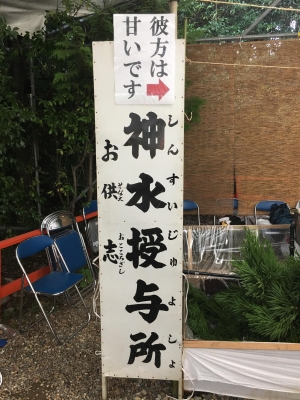 彼方は
甘いです
しんすいじゅよしょ
神水授与所
そなえ おこころざし
お供 志